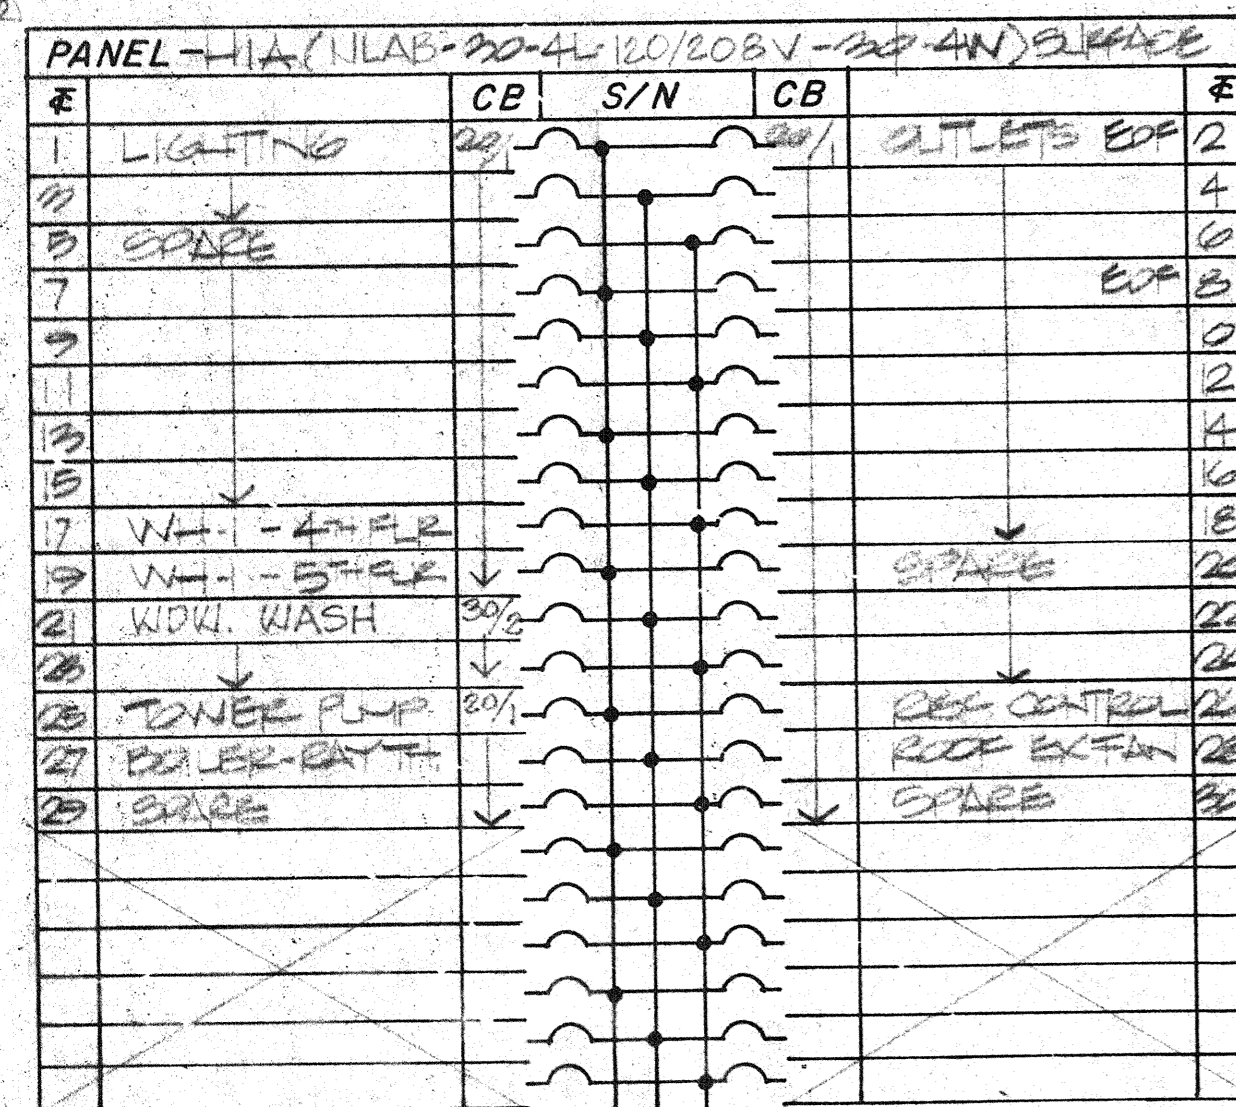 PANEL-H1A (NLAB-30-4L 120/208V-3Ø-4W) SURFACE
℄ CB S/N CB ℄
1 LIGHTING 20/1 20/1 OUTLETS EOF 2
3 4
5 SPARE 6
7 EOF 8
9 10
11 12
13 14
15 16
17 WH-1 - 4TH FLR 18
19 WH-1 - 5TH FLR SPARE 20
21 WDW. WASH 30/2 22
23 24
25 TOWER PUMP 20/1 CONTROL 26
27 BOILER-RAYTH. ROOF EX FAN 28
29 SPARE SPARE 30